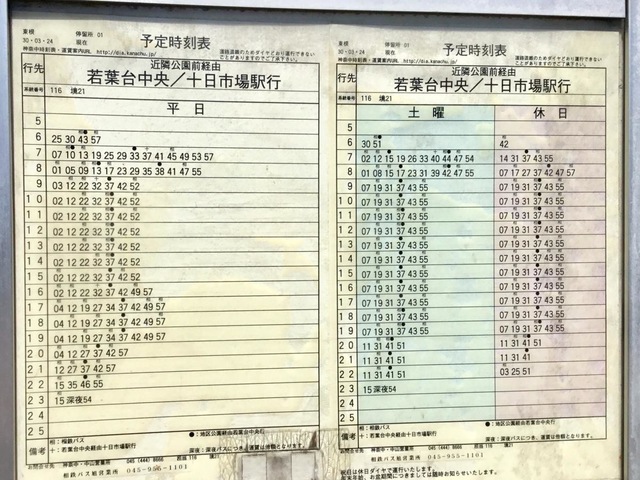 東横
30・03・24 現在
停留所 01
予定時刻表
神奈中時刻表・運賃案内URL http://dia.kanachu.jp/
道路混雑のためダイヤどおり運行できない
ことがありますのでご了承下さい。
行先
近隣公園前経由
若葉台中央/十日市場駅行
系統番号 116 境21
平日
5
6 25 30 43 57
7 07 10 13 19 25 29 33 37 41 45 49 53 57
8 01 05 09 13 17 23 29 35 38 41 47 55
9 03 12 22 32 37 42 52
10 02 12 22 32 37 42 52
11 02 12 22 32 37 42 52
12 02 12 22 32 37 42 52
13 02 12 22 32 37 42 52
14 02 12 22 32 37 42 52
15 02 12 22 32 37 42 52
16 02 12 22 32 37 42 49 57
17 04 12 19 27 34 37 42 49 57
18 04 12 19 27 34 37 42 49 57
19 04 12 19 27 34 37 42 49 57
20 04 12 27 37 42 57
21 12 27 37 42 57
22 15 35 46 55
23 15 深夜54
24
25
備考
●:地区公園経由若葉台中央行
相:相鉄バス
十:若葉台中央経由十日市場駅行
深夜:深夜バスにつき、運賃は倍額となります。
お問合せ先 神奈中・中山営業所 045(444)8666
相鉄バス旭営業所 045-955-1101
東横
30・03・24 現在
停留所 01
予定時刻表
神奈中時刻表・運賃案内URL http://dia.kanachu.jp/
道路混雑のためダイヤどおり運行できない
ことがありますのでご了承下さい。
行先
近隣公園前経由
若葉台中央/十日市場駅行
系統番号 116 境21
土曜 休日
5
6 30 51 42
7 02 12 15 19 26 33 40 44 47 54 14 31 37 43 55
8 01 08 15 17 23 31 39 42 47 55 07 17 27 37 42 47 57
9 07 19 31 37 43 55 07 19 31 37 43 55
10 07 19 31 37 43 55 07 19 31 37 43 55
11 07 19 31 37 43 55 07 19 31 37 43 55
12 07 19 31 37 43 55 07 19 31 37 43 55
13 07 19 31 37 43 55 07 19 31 37 43 55
14 07 19 31 37 43 55 07 19 31 37 43 55
15 07 19 31 37 43 55 07 19 31 37 43 55
16 07 19 31 37 43 55 07 19 31 37 43 55
17 07 19 31 37 43 55 07 19 31 37 43 55
18 07 19 31 37 43 55 07 19 31 37 43 55
19 07 19 31 37 43 55 07 19 31 37 43 55
20 11 31 41 51 11 31 41 51
21 11 31 41 51 11 31 41
22 11 31 41 51 03 25 51
23 15 深夜54
24
25
備考
●:地区公園経由若葉台中央行
相:相鉄バス
十:若葉台中央経由十日市場駅行
深夜:深夜バスにつき、運賃は倍額となります。
お問合せ先 神奈中・中山営業所 045(444)8666
相鉄バス旭営業所 045-955-1101
祝日は休日ダイヤで運行いたします。
年末年始、お盆期間につきましては随時お知らせいたします。